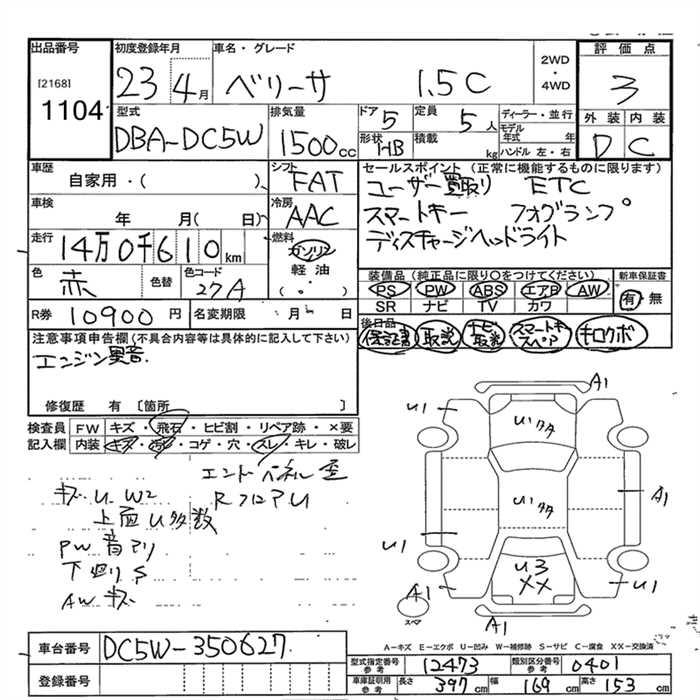 出品番号
[2168]
1104
初度登録年月
23 4月
車名・グレード
ベリーサ 1.5C
2WD
・
4WD
評価点
3
外装 内装
D C
型式
DBA-DC5W
排気量
1500cc
ドア 5
定員 5人
形状 HB
積載 kg
ディーラー・並行
モデル年式 年
ハンドル 左・右
車歴
自家用・( )
車検
年 月( 日)
走行
14万0千610km
色
赤
色替
色コード
27A
シフト
FAT
冷房
AAC
燃料
ガソリン
軽油
( 。 )
セールスポイント(正常に機能するものに限ります)
ユーザー買取り ETC
スマートキー フォグランプ
ディスチャージヘッドライト
装備品(純正品に限り○をつけてください)
PS PW ABS エアB AW
SR ナビ TV カワ
新車保証書
有・無
R券 10900円
名変期限 月 日
後日品
保証書 取説 ナビ取説 スマートキースペア キロクボ
注意事項申告欄(不具合内容等は具体的に記入して下さい)
エンジン異音.
修復歴 有 [箇所 ]
検査員記入欄
FW キズ・飛石・ヒビ割・リペア跡・×要
内装 キズ・汚れ・コゲ・穴・スレ・キレ・破レ
エンドパネル歪
キズ U W2 RフロアU
上面U多数
PW音アリ
下廻りS
AWキズ
A1
U1
Uタタ
A1
U1
U3
XX
A1
U1
スペア
A1
A-キズ E-エクボ U-凹み W-補修跡 S-サビ C-腐食 XX-交換済
車台番号
DC5W-350627
登録番号
型式指定番号参考 12473
類別区分番号参考 0401
車庫証明用参考 長さ 397cm 幅 169cm 高さ 153cm